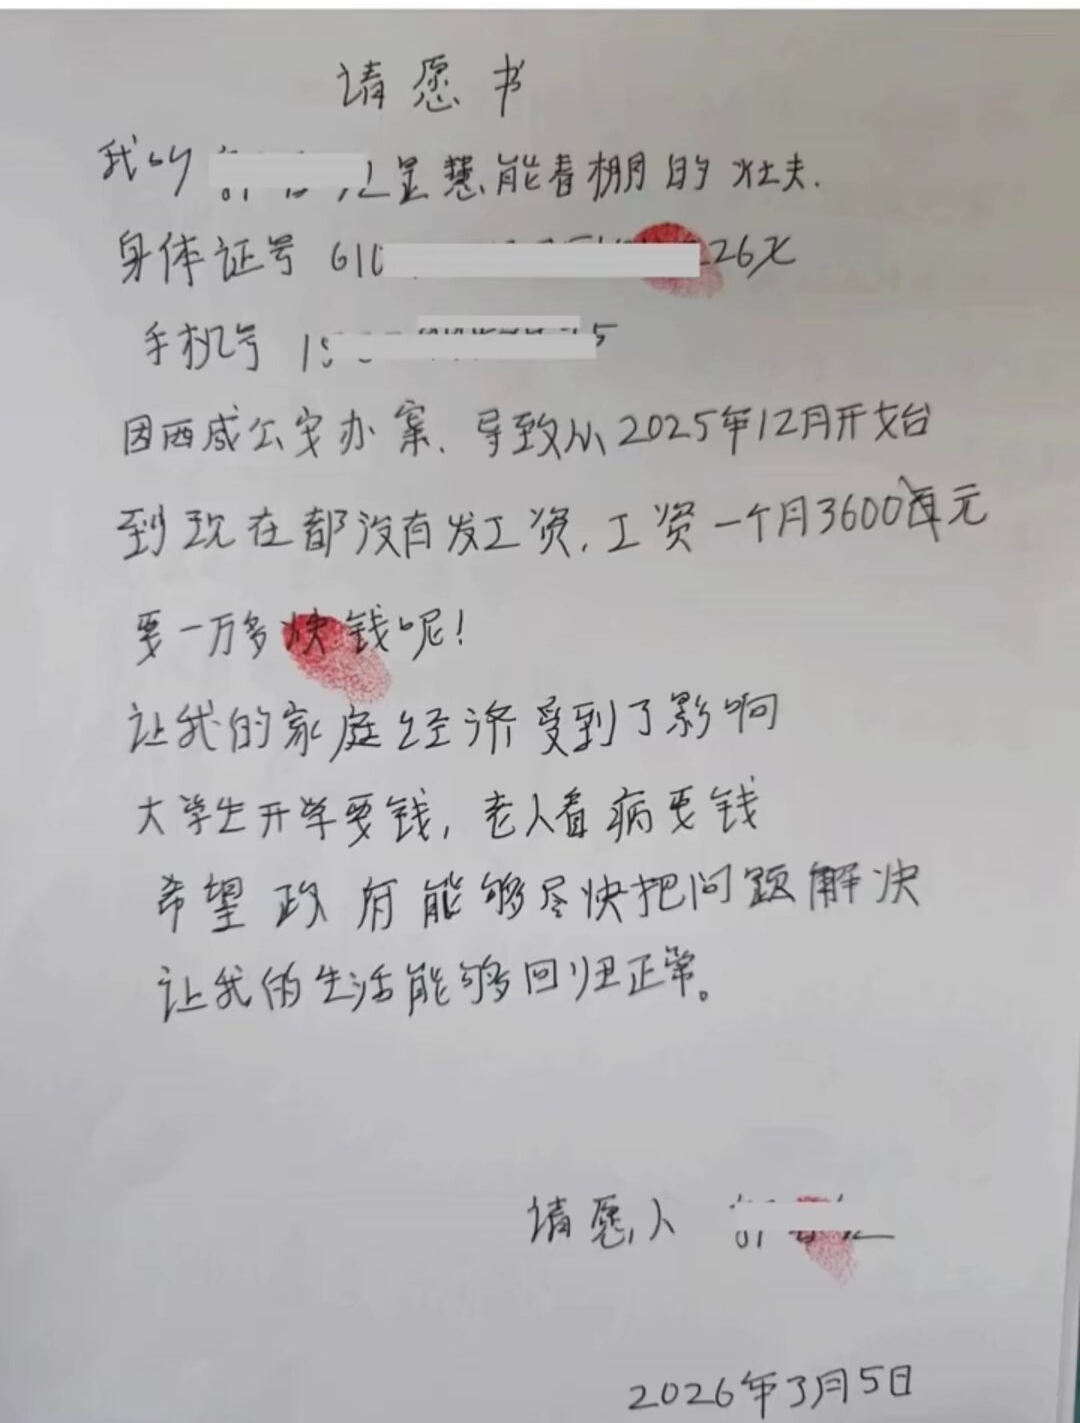 请愿书
我叫 是慧能看棚的灶夫.
身体证号 610 26X
手机号 1 5
因西咸公安办案.导致从2025年12月开始
到现在都没有发工资.工资一个月3600每元
要一万多块钱呢!
让我的家庭经济受到了影响
大学生开学要钱,老人看病要钱
希望政府能够尽快把问题解决
让我的生活能够回归正常。
请愿人
2026年3月5日